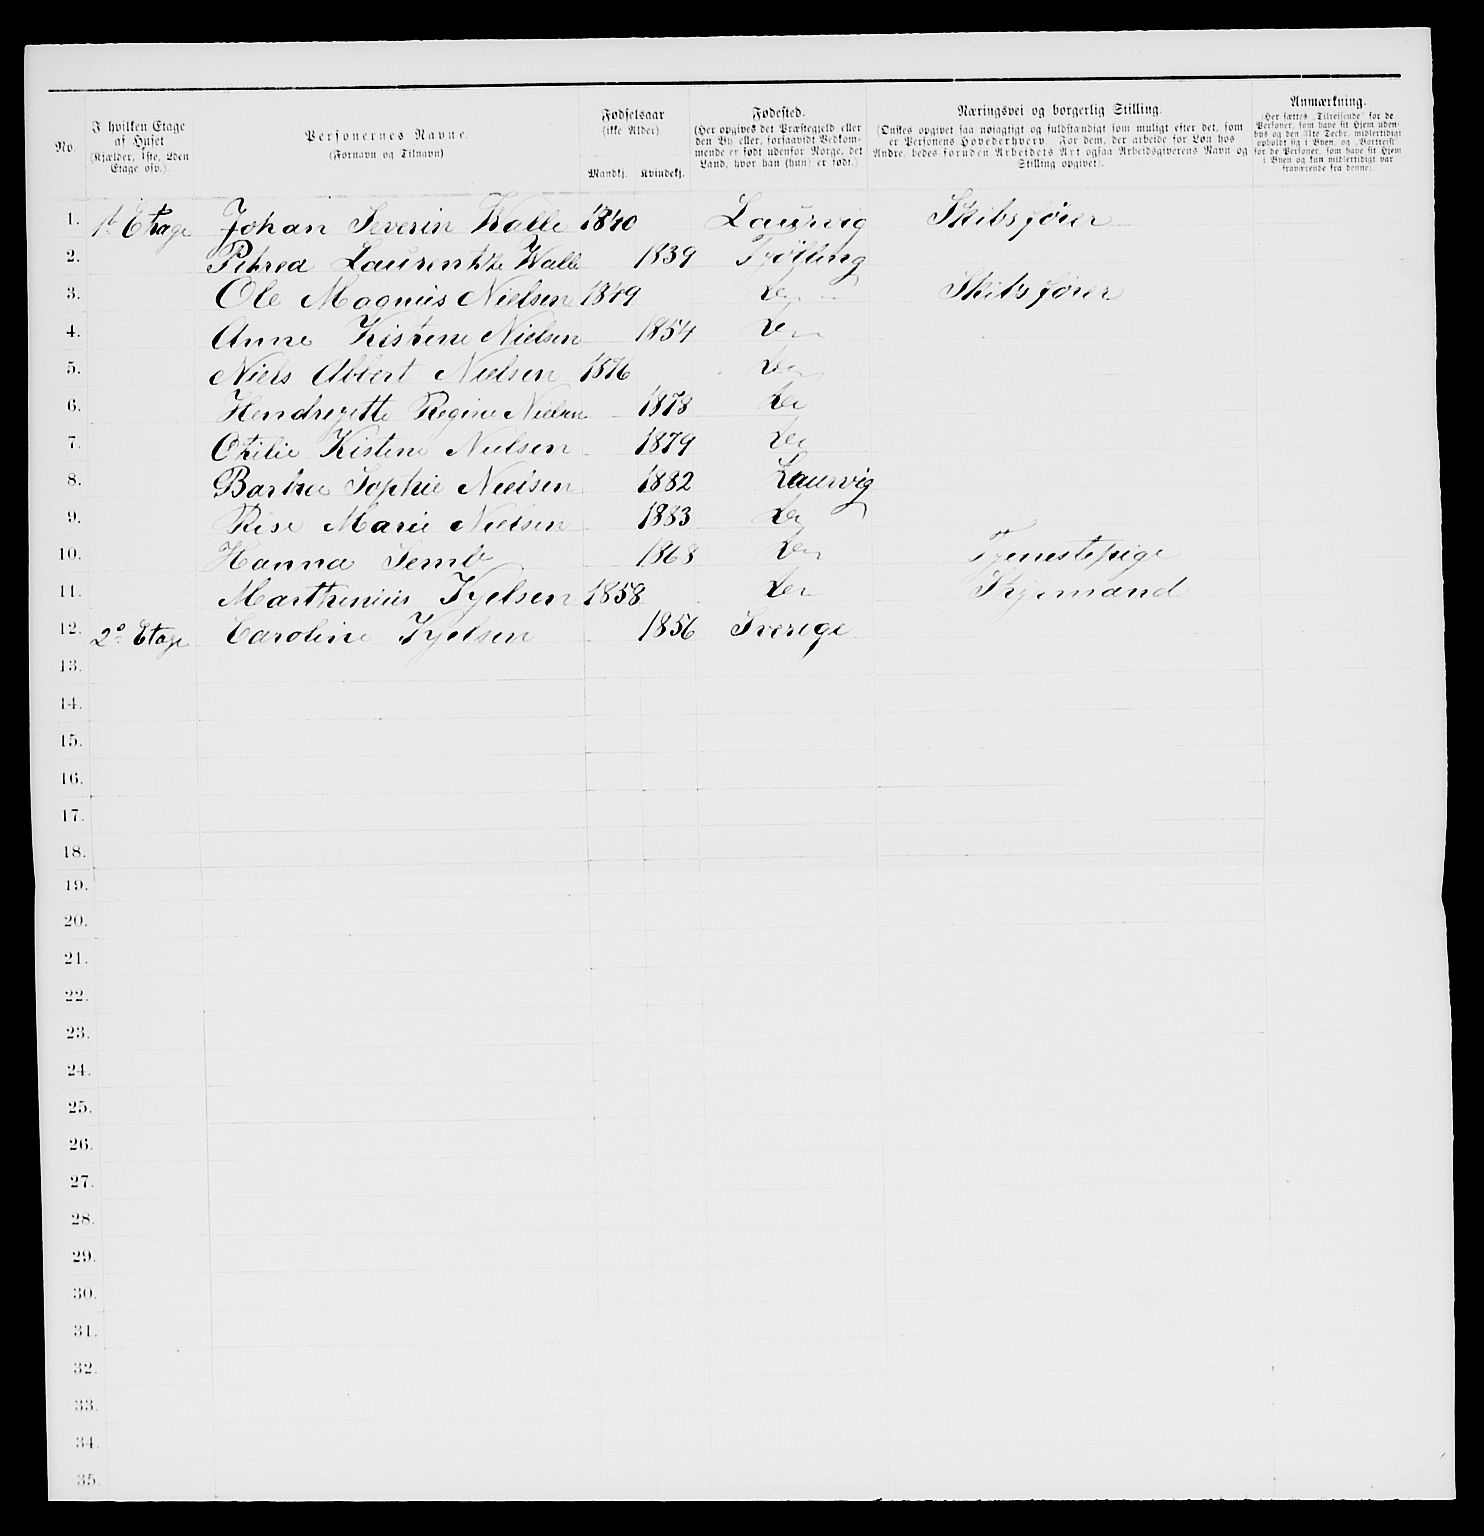 No.
I hvilken Etage af Huset (Kjælder, 1ste, 2den Etage osv.).
Personernes Navne. (Fornavn og Tilnavn)
Fødselsaar (ikke Alder)
Mandkj. Kvindekj.
Fødested. (Her opgives det Præstegjeld eller den By eller, forsaavidt Vedkommende er født udenfor Norge, det Land, hvor han (hun) er født.)
Næringsvei og borgerlig Stilling. (Ønskes opgivet saa nøiagtigt og fuldstændigt som muligt efter det, som er Personens Hovederhverv. For dem, der arbeide for Løn hos Andre, bedes foruden Arbeidets Art ogsaa Arbeidsgiverens Navn og Stilling opgivet).
Anmærkning. (Her sættes „Tilreisende" for de Personer, som have sit Hjem udenbys og den 31te Decbr. midlertidigt opholdt sig i Byen, og „Bortreist" for de Personer, som have sit Hjem i Byen og kun midlertidigt var fraværende fra denne).
1. 1ste Etage Johan Severin Walle 1840 Laurvig Skibsfører
2. Petrea Laurentze Walle 1839 Tjølling
3. Ole Magnus Nielsen 1849 Do Skibsfører
4. Anne Kistene Nielsen 1854 Do
5. Niels Abbert Nielsen 1876 Do
6. Hendrijette Regine Nielsen 1878 Do
7. Otilie Kistene Nielsen 1879 Do
8. Barbra Sophie Nielsen 1882 Laurvig
9. Rise Marie Nielsen 1883 Do
10. Hanna Semb 1868 Do Tjenestepige
11. Marthinius Kjelsen 1858 Do Styrmand
12. 2den Etage Caroline Kjelsen 1856 Sverige
13.
14.
15.
16.
17.
18.
19.
20.
21.
22.
23.
24.
25.
26.
27.
28.
29.
30.
31.
32.
33.
34.
35.